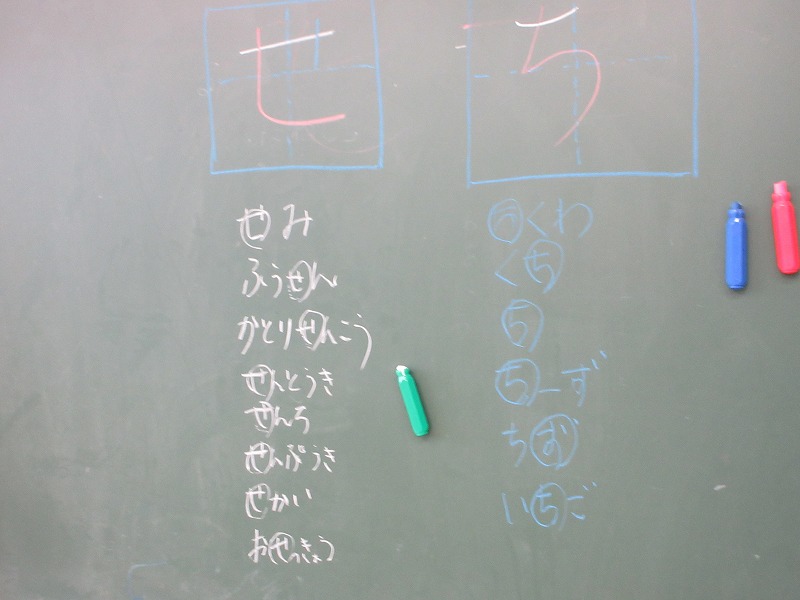 せ
せみ
ふうせん
かとりせんこう
せんとうき
せんろ
せんぷうき
せかい
おせっきょう
ち
ちくわ
くち
ち
ちーず
ちず
いちご